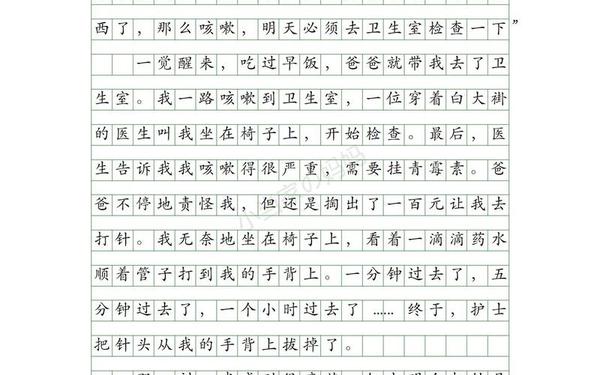 西了，那么咳嗽，明天必须去卫生室检查一下”
一觉醒来，吃过早饭，爸爸就带我去了卫
生室。我一路咳嗽到卫生室，一位穿着白大褂
的医生叫我坐在椅子上，开始检查。最后，医
生告诉我我咳嗽得很严重，需要挂青霉素。爸
爸不停地责怪我，但还是掏出了一百元让我去
打针。我无奈地坐在椅子上，看着一滴滴药水
顺着管子打到我的手背上。一分钟过去了，五
分钟过去了，一个小时过去了……终于，护士
把针头从我的手背上拔掉了。